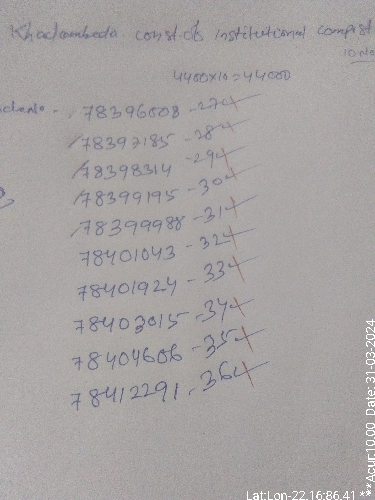 Khadambeda const. of institutional compist
10 No
4400x10=44000
78396008 -27
78397185 -28
78398314 -29
78399195 -30
78399988 -31
78401043 -32
78401924 -33
78403015 -34
78404606 -35
78412291 -36
Lat:Lon-22.16:86.41 ***Acur:10.00 Date: 31-03-2024